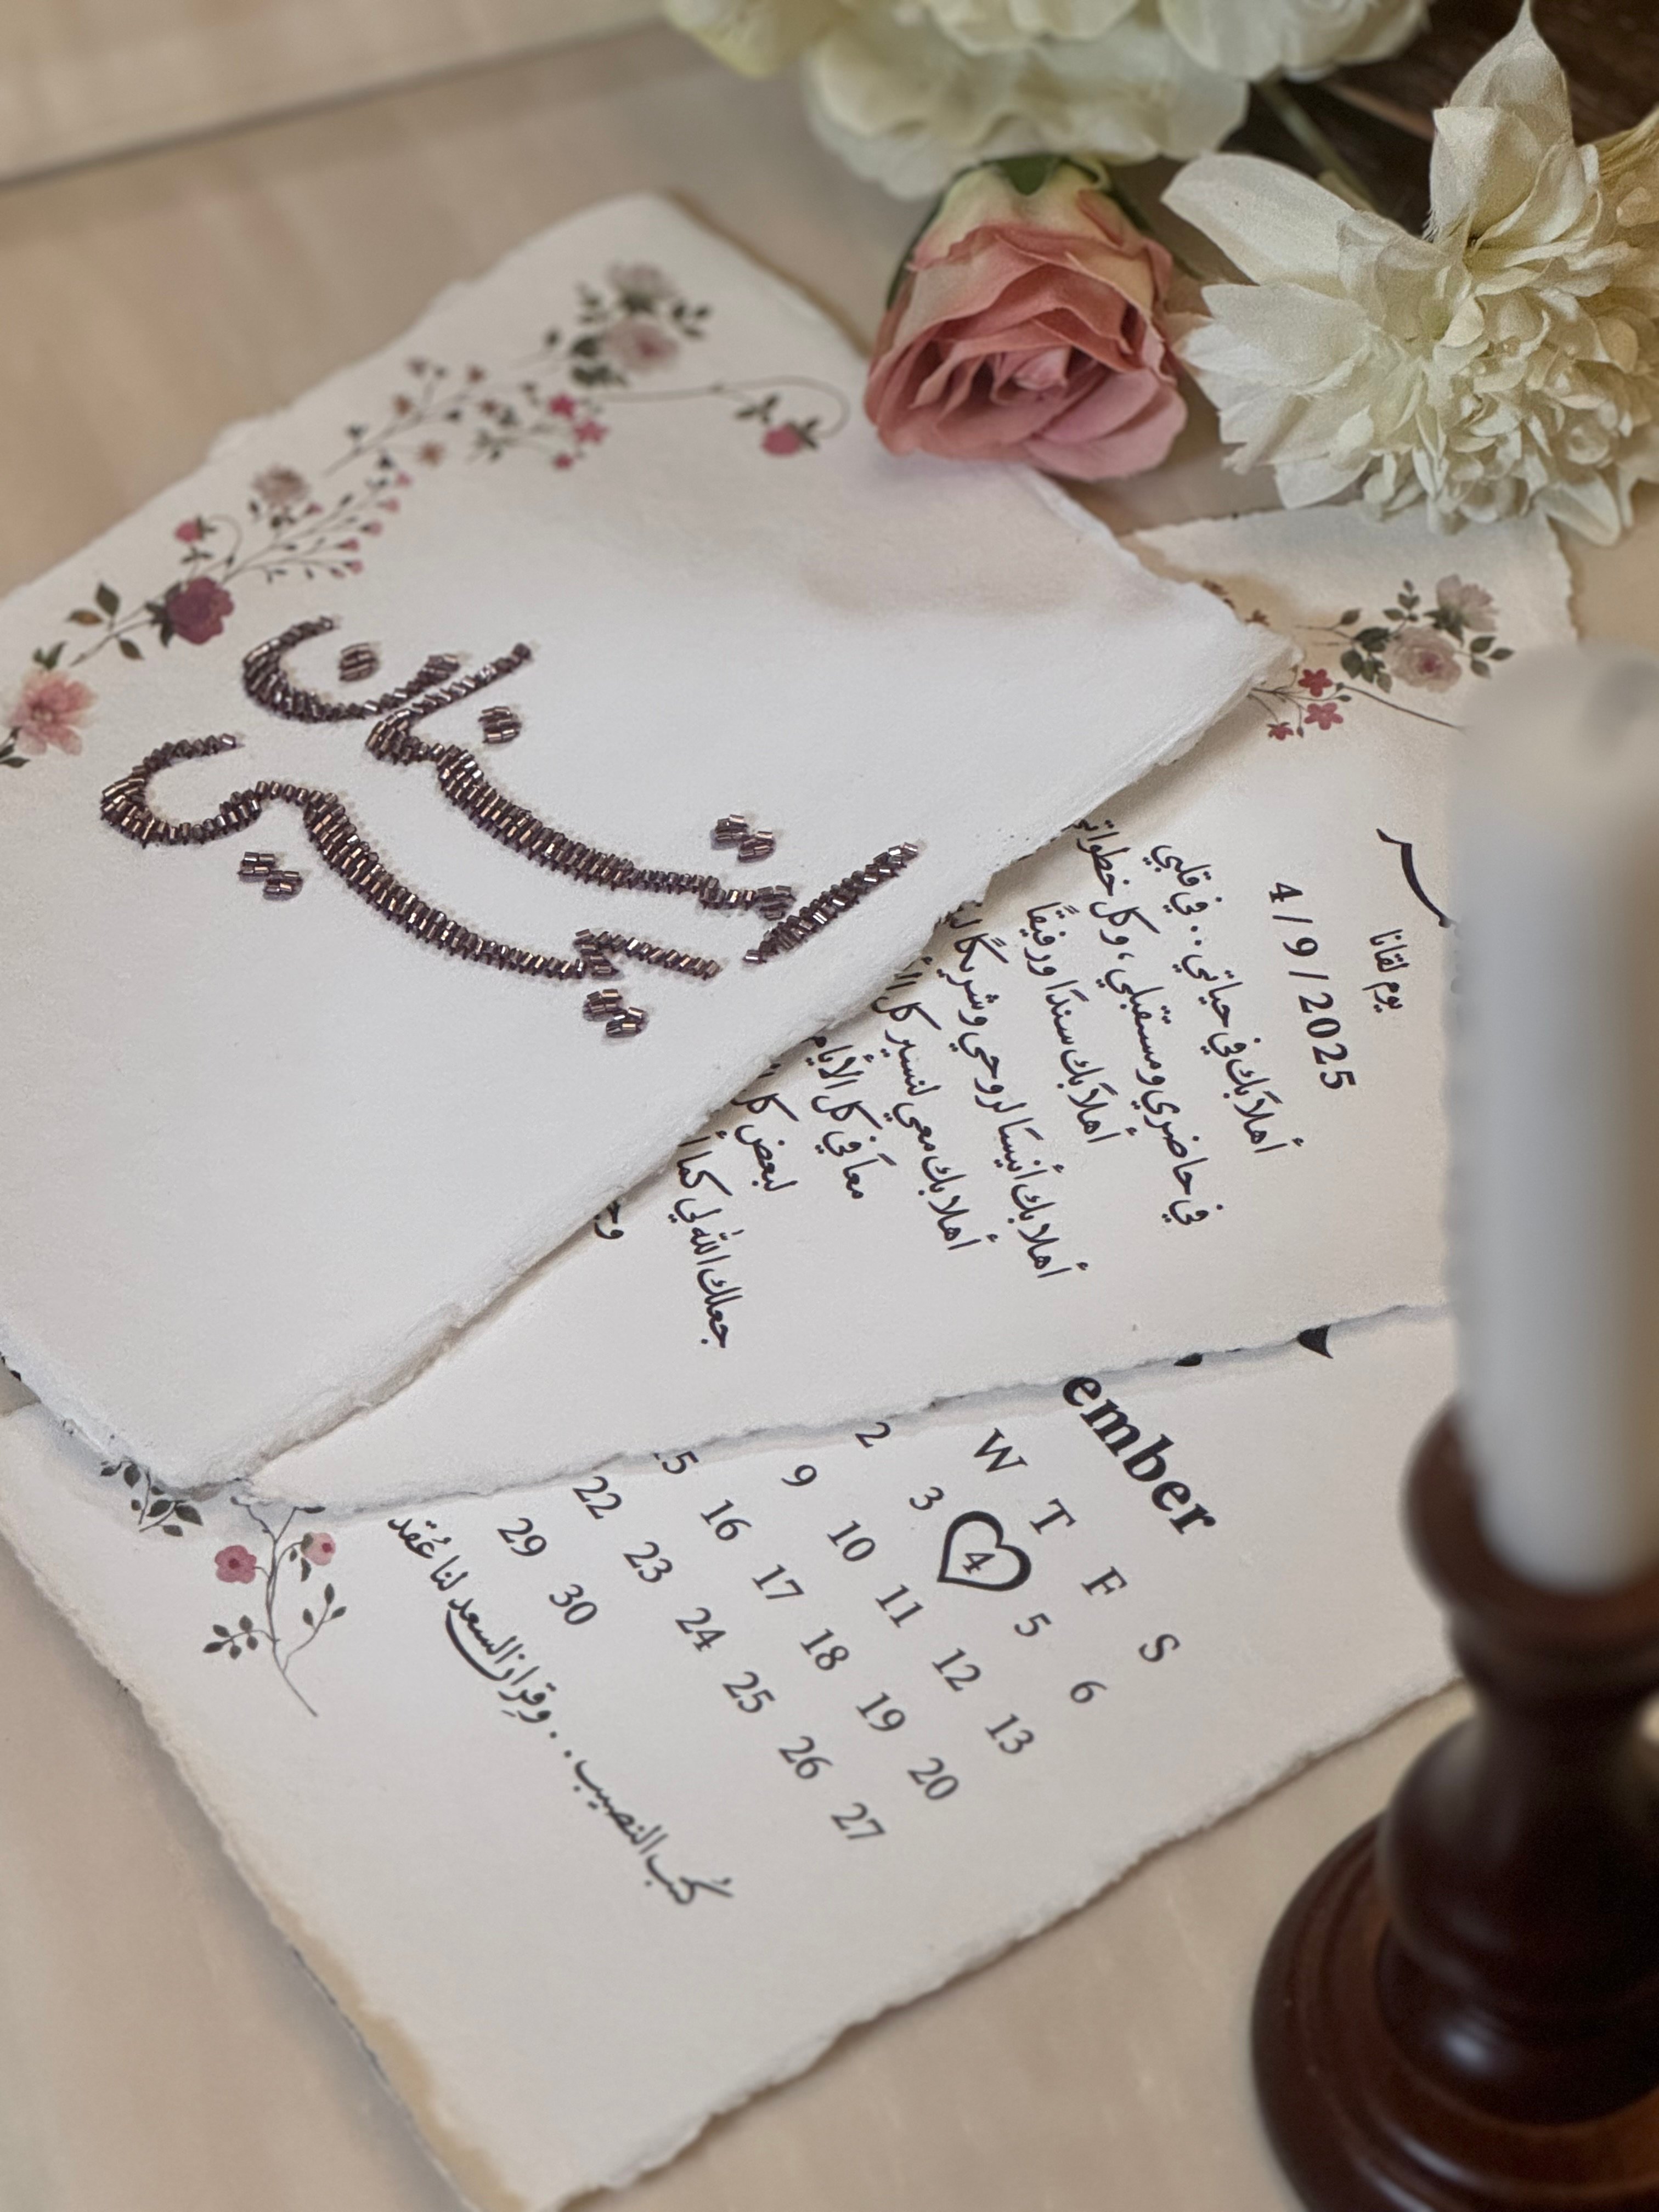 امتنان
يوم لقانا
4/9/2025
أهلاً بك في حياتي.. في قلبي
في حاضري ومستقبلي، وكل
أهلاً بك سندًا ورفيقًا
أهلا بك أنيسًا لروحي وشريكًا
أهلا بك معي لنسير كل
معاً في كل الأيام
لبعض كل
جعلك الله لي كما
ember
W T F S
2 3 4 5 6
9 10 11 12 13
16 17 18 19 20
22 23 24 25 26 27
29 30
كُتب النصيب.. وقِران السعد لنا عُقد